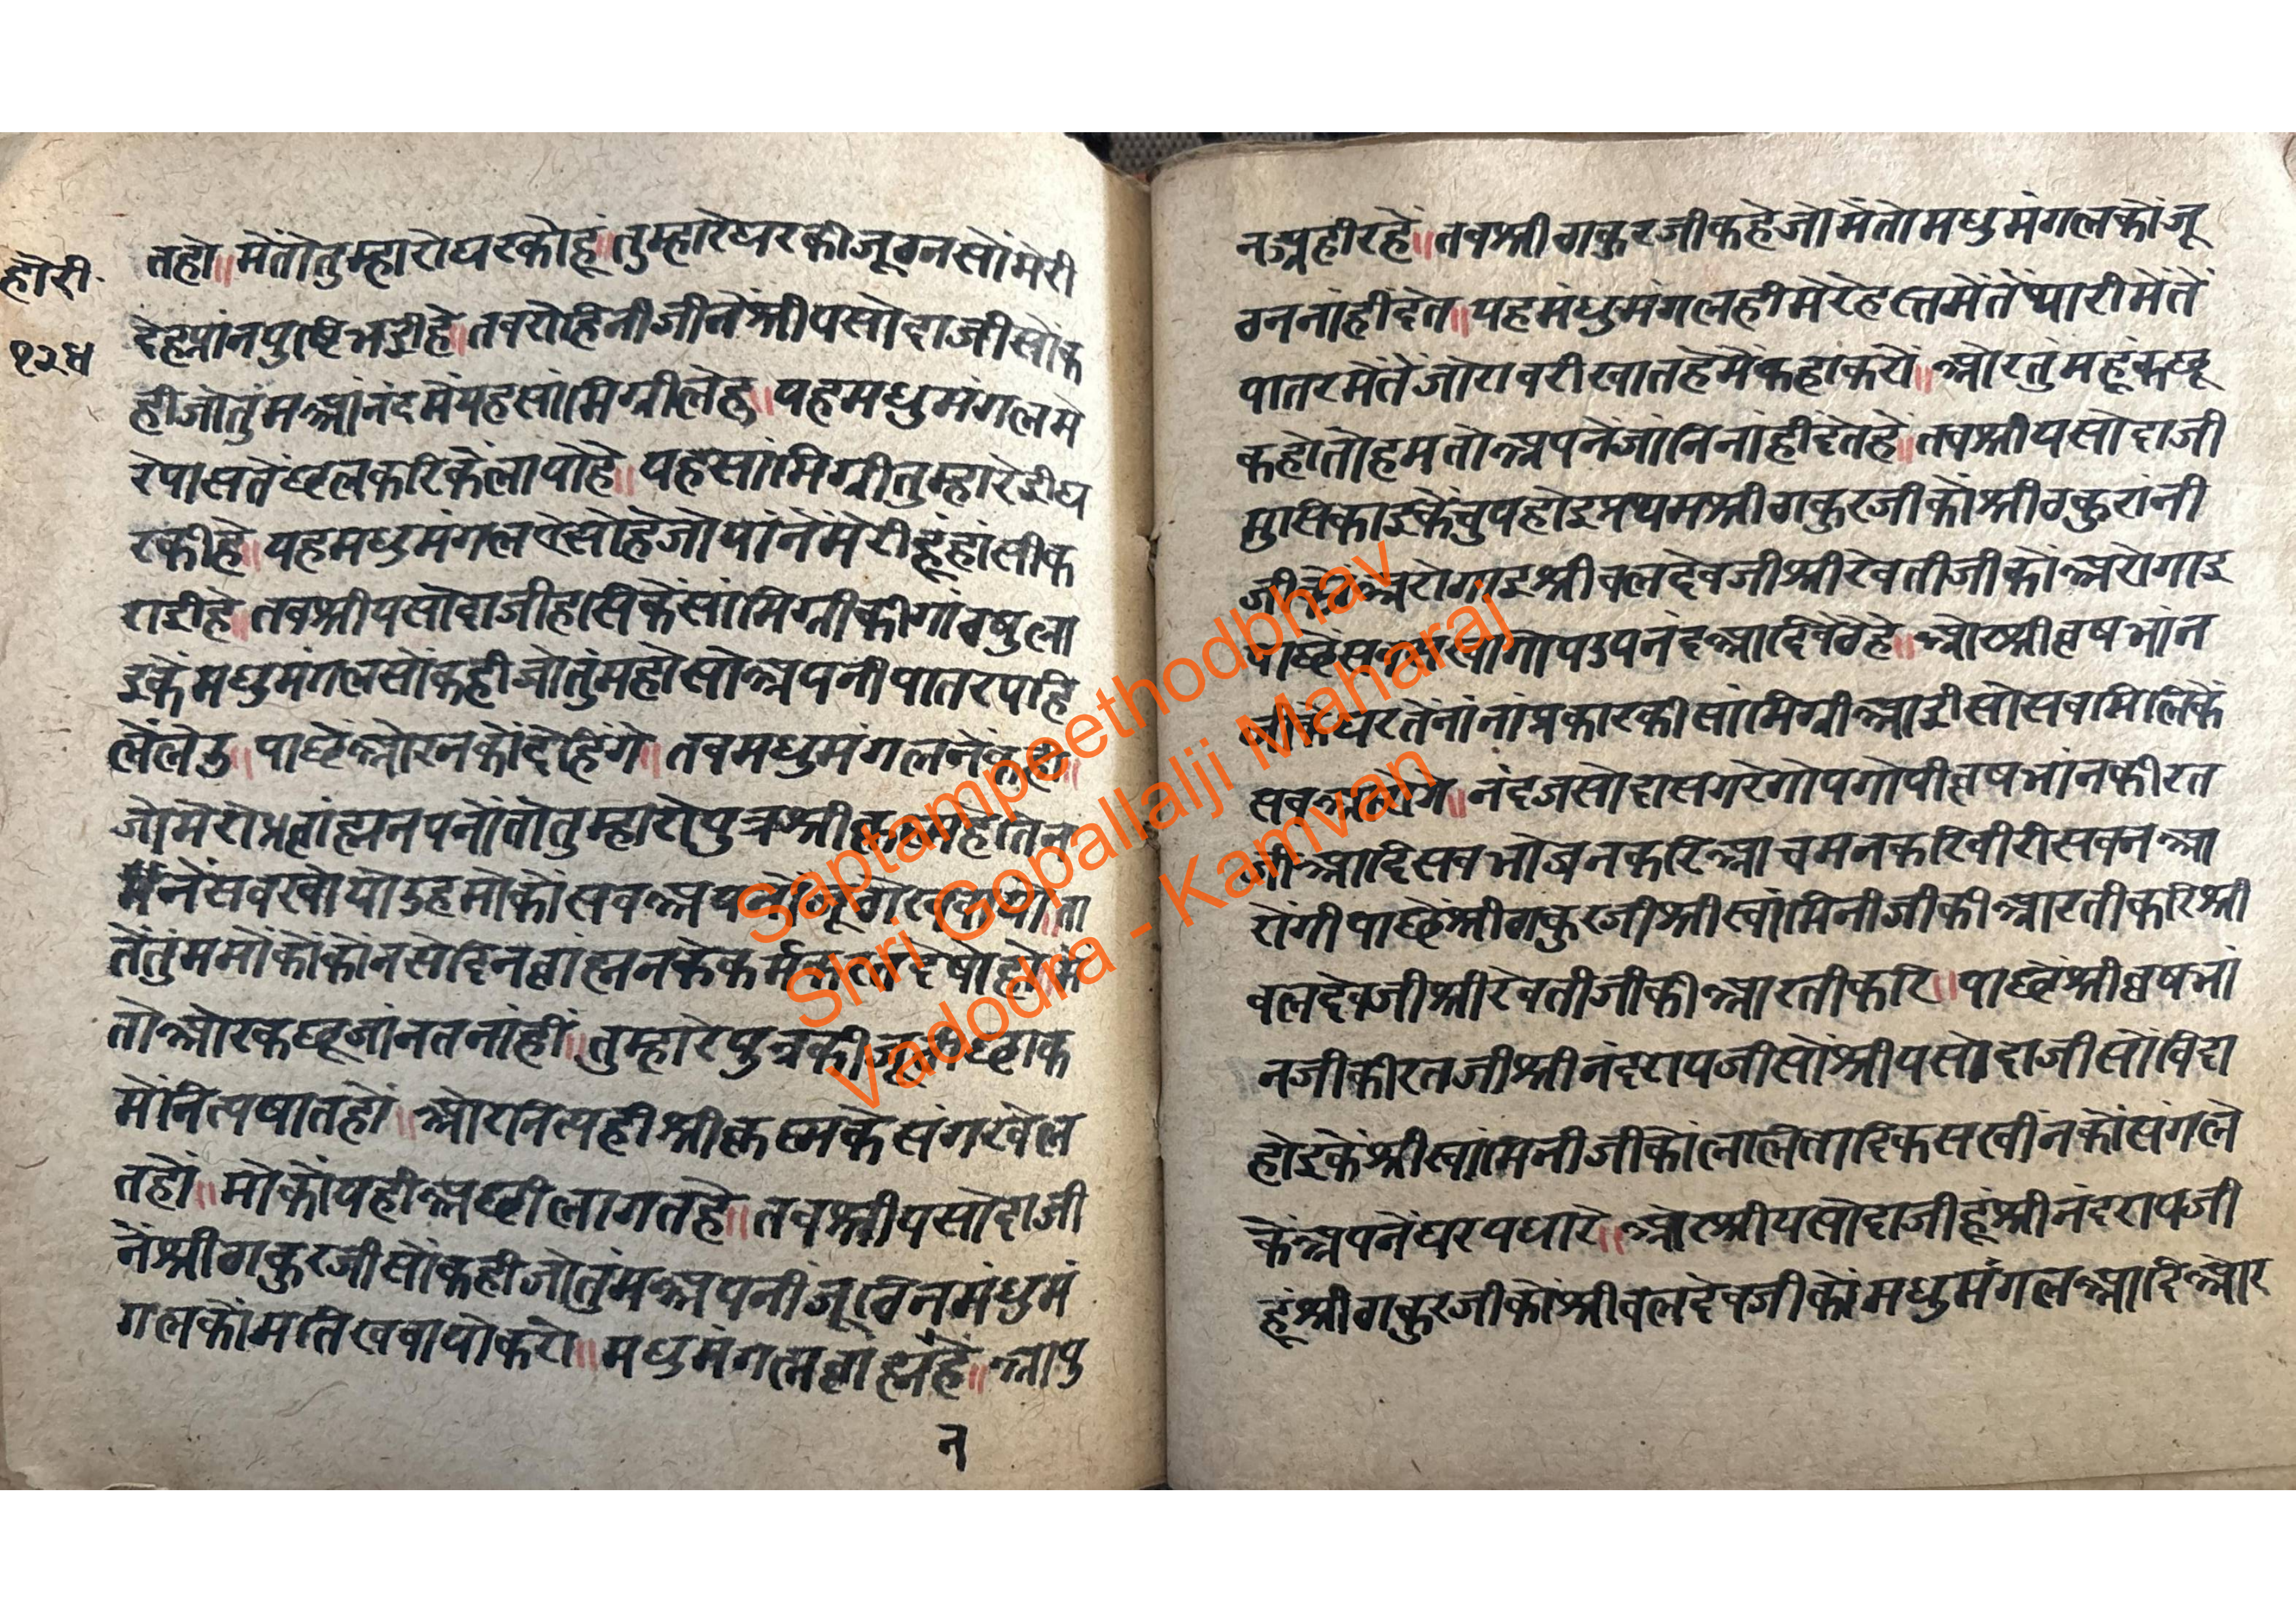 होरी
१२४
तहो॥ मेंतोतुम्हारोघरकोहूं॥ तुम्हारेघरकीजूठनसोंमेरी
देहप्रांनपुष्टिभईहे॥ तबरोहिनीजीनेंश्रीयसोदाजीसोंक
हीजोतुंमआंनंदमेंयहसांमिग्रीलेहु॥ यहमधुमंगलमे
रेपासतेंछलकरिकेंलायोहे॥ यहसांमिग्रीतुम्हारेईघ
रकीहे॥ यहमधुमंगलऐसोहेजोयांनेंमेरीहूंहांसीक
राईहे॥ तबश्रीयसोदाजीहासिकेंसांमिग्रीकीगांठषुला
इकेंमधुमंगलसोंकहीजोतुंमहोसोअपनीपातरपहि
लेंलेउ॥ पाछेंओरनकोंदेहिंगे॥ तबमधुमंगलनेंकही॥
जोमेरोब्रांह्मनपनोंतोतुम्हारोपुत्रश्रीकृष्णहेतिन
नेंसबखोयोउहमोकोंसबअपनी
तेंतुंममोंकोंकोंनसेदिनब्रांह्मनकेकर्मकरत
तोओरकछूजांनतनांहीं॥ तुम्हारेपुत्रकीजूठीछाक
मेंनित्यषातहों॥ ओरनित्यहीश्रीकृष्णकेसंगखेल
तहों॥ मोकोंयहीअछीलागतहे॥ तबश्रीयसोदाजी
नेंश्रीठाकुरजीसोंकहीजोतुंमअपनीजूठिनमंधुमं
गलकोंमतिखबायोकरो॥ मधुमंगलब्रांह्मंहें॥ आपु
न
नऊनहीरहें॥ तबश्रीठाकुरजीकहेजोमेंतोमधुमंगलकोंजू
ठननांहींदेत॥ यहमंधुमंगलहीमेरेहातमेंतेंथारीमेंतें
पातरमेंतेंजोराबरीखातहेमेंकहाकरों॥ ओरतुंमहूंकछू
कहोतोहमतोअपनेंजांनिनांहींदेतहें॥ तबश्रीयसोदाजी
मुसिकाइकेंचुपहोइप्रथमश्रीठाकुरजीकोंश्रीठकुरांनी
जीकोंअरोगाइश्रीबलदेवजीश्रीरेवतीजीकोंअरोगाइ
पाछेंसबसखागोपउपनंदआदिबेठेहे॥ ओरश्रीवृषभांन
जीकेघरतेंनांनांप्रकारकीसांमिग्रीआईसोसबमिलिकें
सबअरोगे॥ नंदजसोदासगरेगोपगोपीवृषभांनकीरत
जीआदिसबभोजनकरिआचमनकरिबीरीसबनआ
रोगीपाछेंश्रीठाकुरजीश्रीस्वांमिनीजीकीआरतीकरिश्री
बलदेवजीश्रीरेवतीजीकीआरतीकरि॥ पाछेंश्रीवृषभां
नजीकीरतजीश्रीनंदरायजीसोंश्रीयसोदाजीसोंविदा
होइकेंश्रीस्वांमिनीजीकोंललितादिकसखीनकोंसंगले
केंअपनेंघरपधारे॥ ओरश्रीयसोदाजीहूंश्रीनंदरायजी
हूंश्रीठाकुरजीकोंश्रीबलदेवजीकोंमधुमंगलआदिओर
Saptampeethodbhav
Shri Gopallalji Maharaj
Vadodra - Kamvan